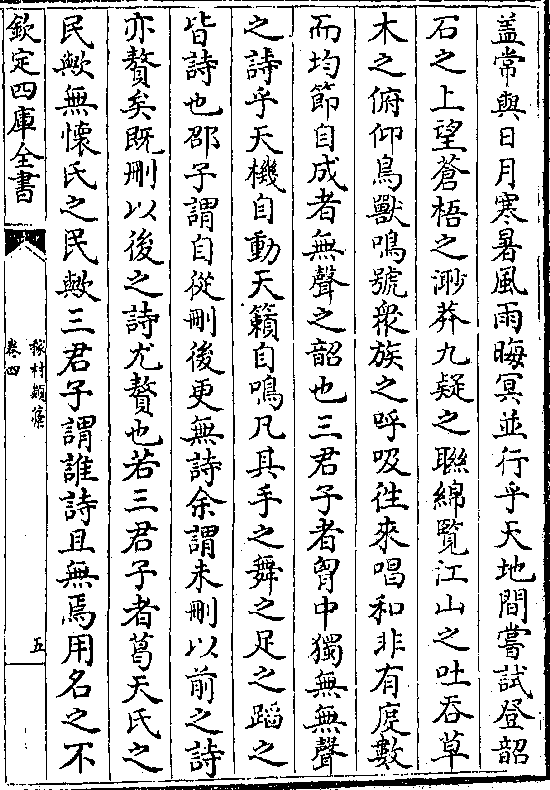 盖常與日月寒暑風雨晦冥並行乎天地間嘗試登韶
石之上望蒼梧之渺莽九疑之聯綿覽江山之吐吞草
木之俯仰鳥獸鳴號衆族之呼吸徃來唱和非有度數
而均節自成者無聲之韶也三君子者胷中獨無無聲
之詩乎天機自動天籟自鳴凡其手之舞之足之蹈之
皆詩也邵子謂自從刪後更無詩余謂未刪以前之詩
亦贅矣既刪以後之詩尤贅也若三君子者葛天氏之
民歟無懷氏之民歟三君子謂誰詩且無焉用名之不
欽定四庫全書
稼村類藁
卷四
五